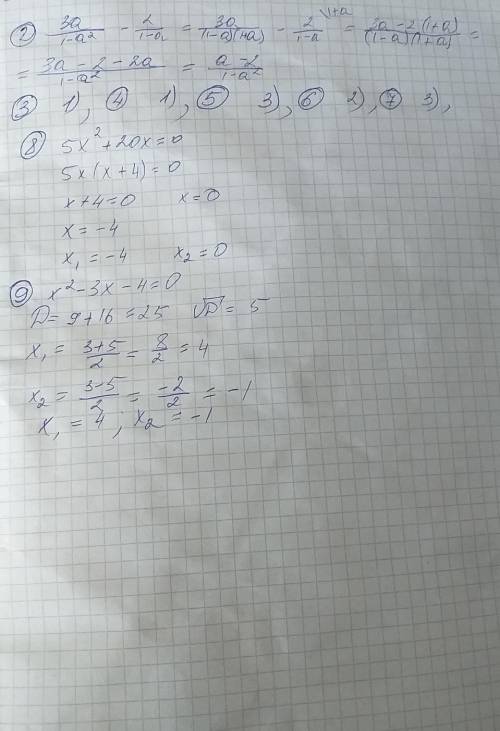 ② 3a/(1-a²) - 2/(1-a) = 3a/((1-a)(1+a)) - 2/(1-a) \1+a = (3a-2(1+a))/((1-a)(1+a)) =
= (3a-2-2a)/(1-a²) = (a-2)/(1-a²)
③ 1), ④ 1), ⑤ 3), ⑥ 2), ⑦ 3),
⑧ 5x²+20x=0
5x(x+4)=0
x+4=0 x=0
x=-4
x₁=-4 x₂=0
⑨ x²-3x-4=0
D=9+16=25 √D=5
x₁= (3+5)/2 = 8/2 = 4
x₂= (3-5)/2 = -2/2 = -1
x₁=4; x₂=-1